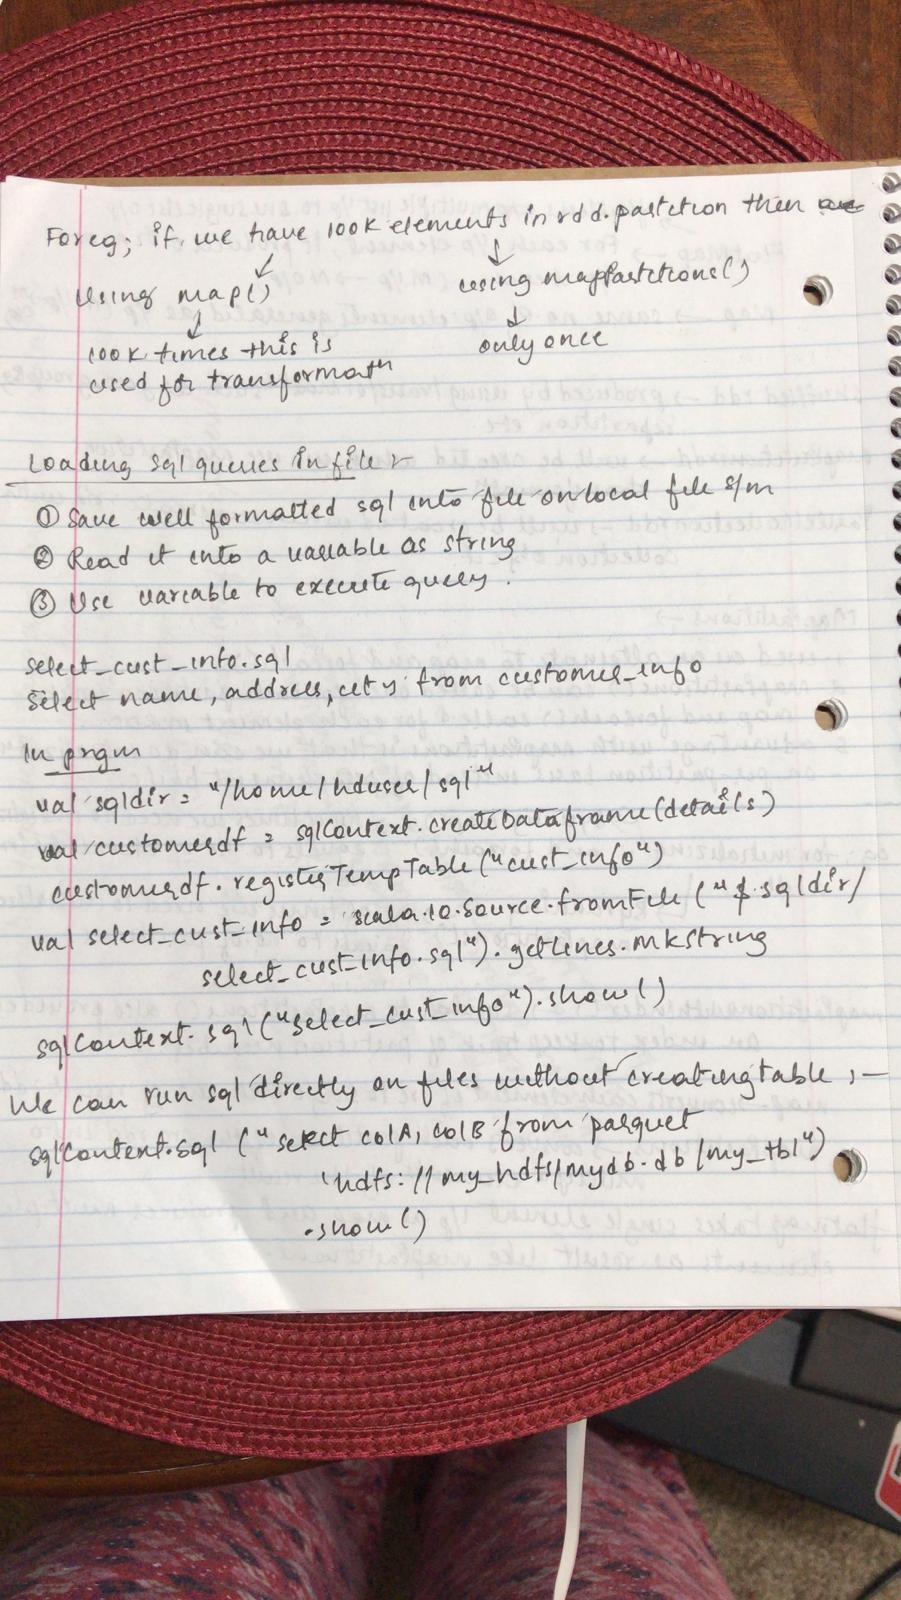 For eg; if we have 100K elements in rdd.partition then
using map()    using mapPartitions()
100K times this is    only once
used for transformatn
Loading sql queries in file :-
① Save well formatted sql into file on local file s/m
② Read it into a variable as string
③ Use variable to execute query.
select_cust_info.sql
Select name, address, city from customer_info
In prgm
val sqldir = "/home/hduser/sql"
val customerdf = sqlContext.createDataframe(details)
customerdf.registerTempTable("cust_info")
val select_cust_info = scala.io.source.fromFile("$sqldir/
select_cust_info.sql").getlines.mkstring
sqlContext.sql("select_cust_info").show()
We can run sql directly on files without creating table :-
sqlContext.sql("select colA, colB from parquet
'hdfs://my_hdfs/mydb.db/my_tbl")
.show()